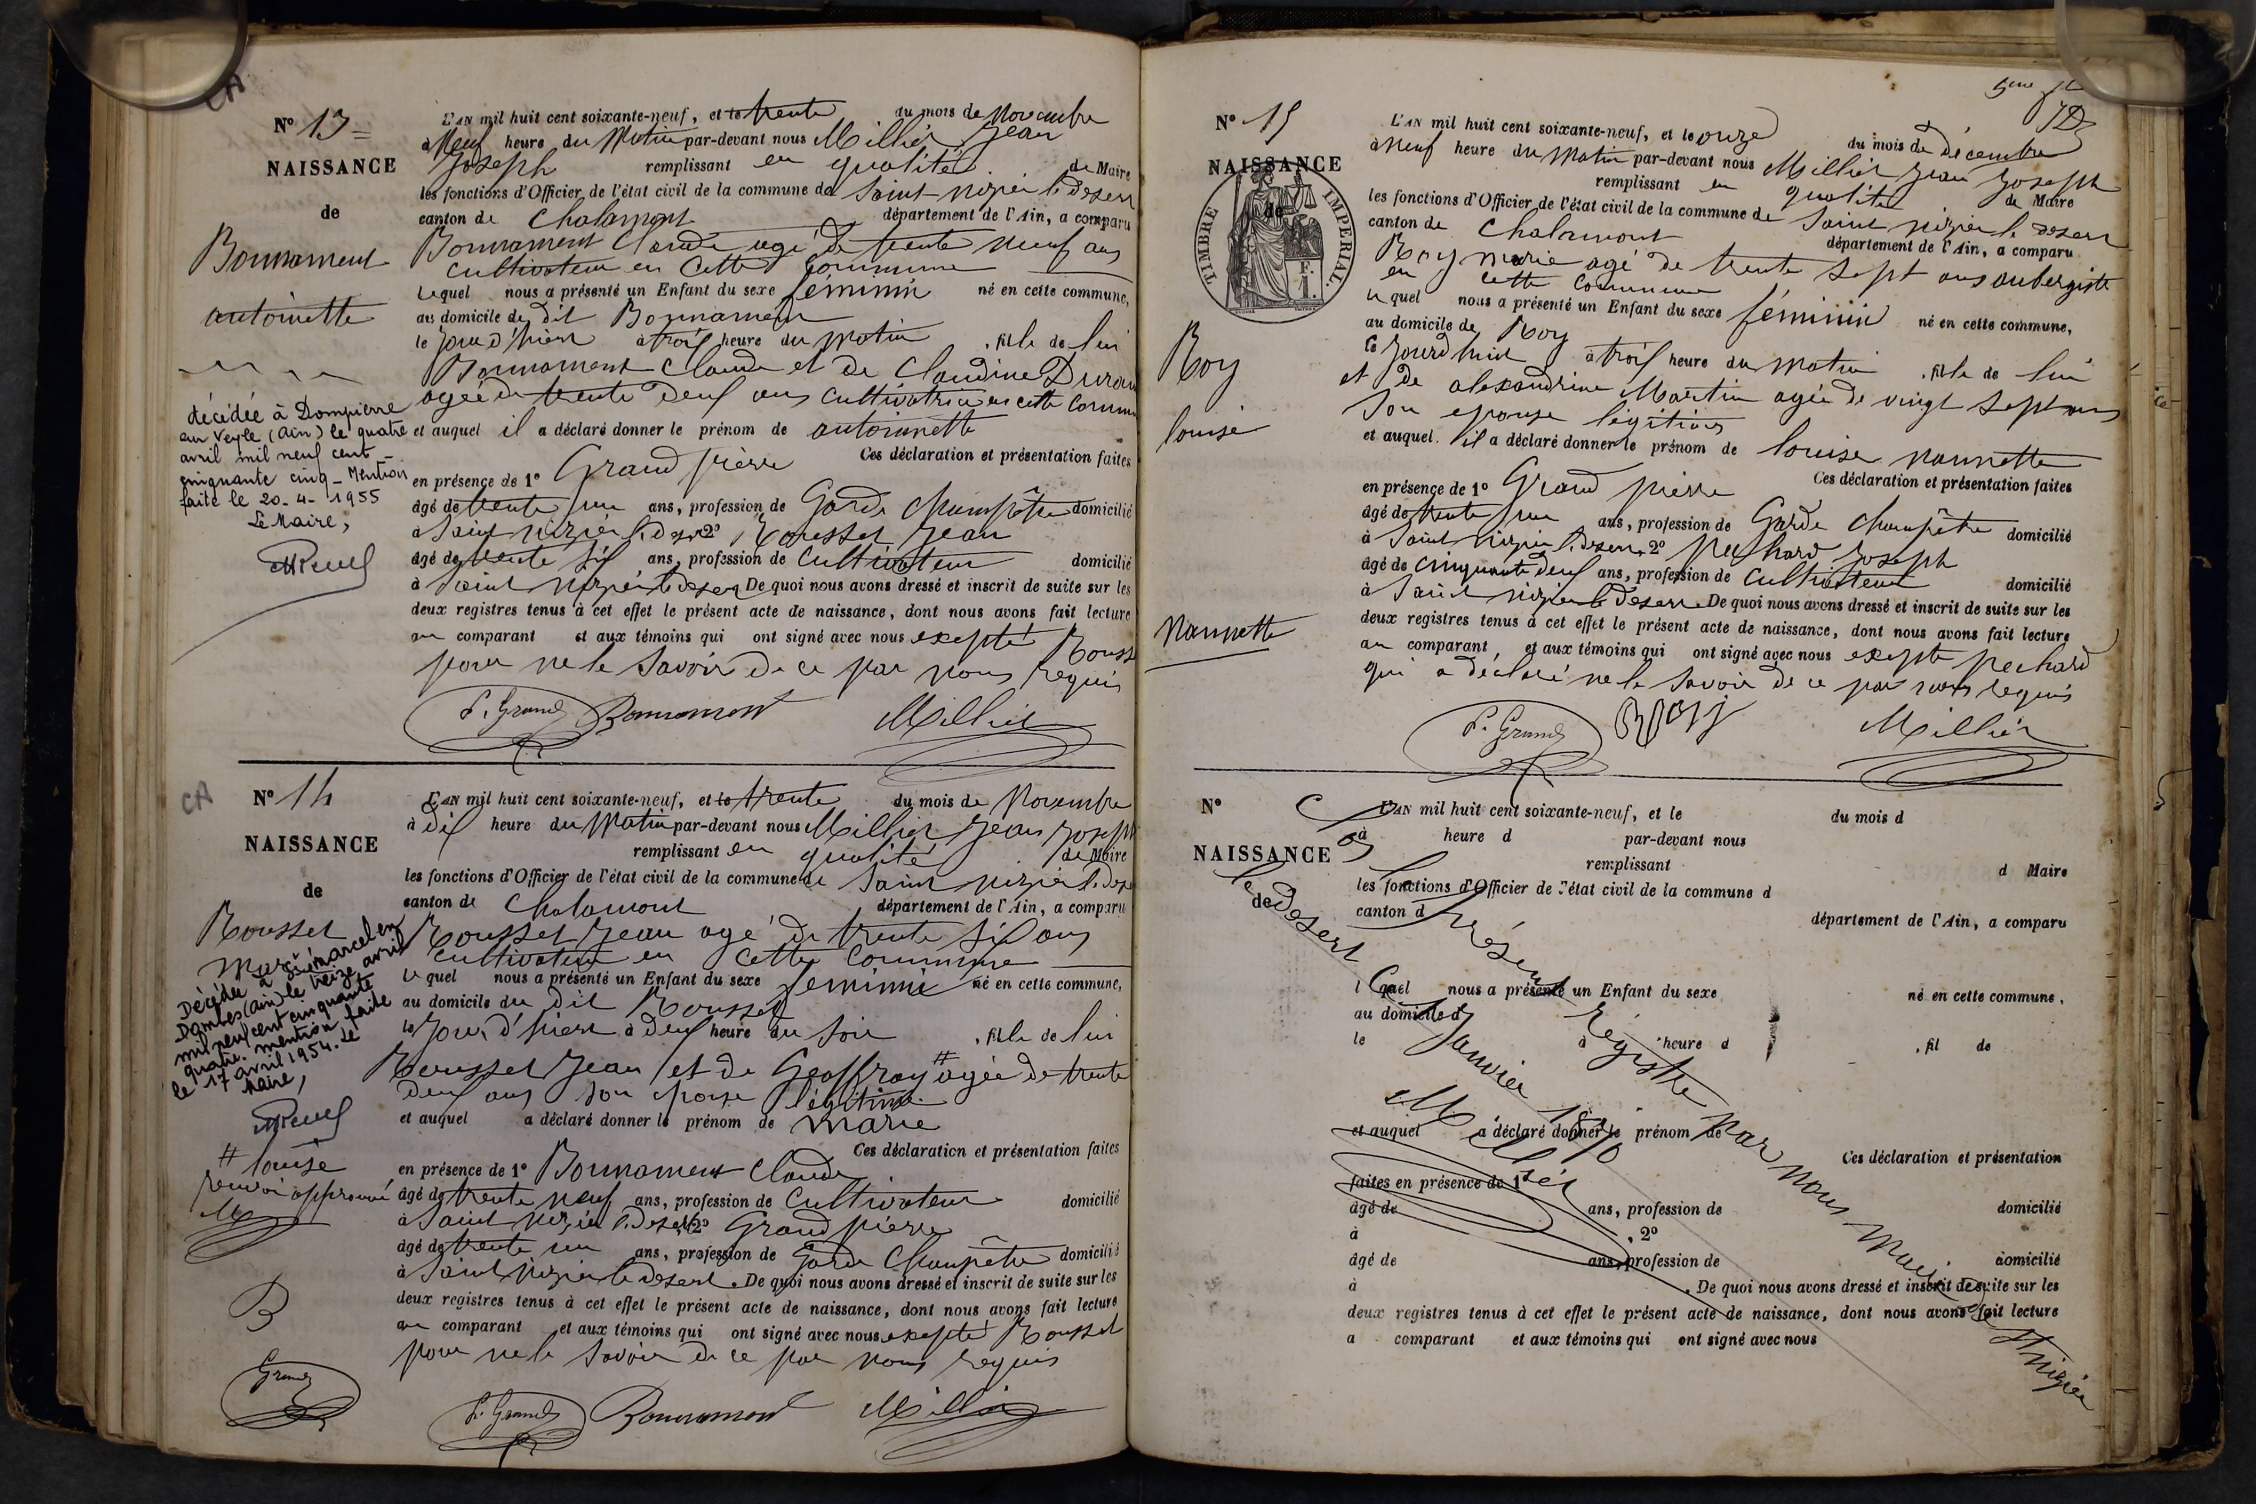 CA
N° 13
NAISSANCE
de
Bonnament
antoinette
décédée à Dompierre
sur Veyle (Ain) le quatre
avril mil neuf cent
cinquante cinq - Mention
faite le 20-4-1955
Le Maire,
L'AN mil huit cent soixante-neuf, et le trente du mois de Novembre
à Neuf heure du Matin par-devant nous Millier Jean
Joseph remplissant en qualité de Maire
les fonctions d'Officier de l'état civil de la commune de Saint-nizier le Desert
canton de Chalamont département de l'Ain, a comparu
Bonnament Claude agé de trente neuf ans
cultivateur en Cette Commune
lequel nous a présenté un Enfant du sexe féminin né en cette commune,
au domicile du dit Bonnament
le jour d'hier à trois heure du matin , fille de lui
Bonnament Claude et de Claudine Duran
agée de trente deux ans cultivatrice en cette commu
et auquel il a déclaré donner le prénom de antoinette
Ces déclaration et présentation faites
en présence de 1° Grand pierre
âgé de trente un ans, profession de Garde Champêtre domicilié
à Saint nizier le Desert 2° Rousset Jean
âgé de trente six ans, profession de Cultivateur domicilié
à Saint Nizier le desert De quoi nous avons dressé et inscrit de suite sur les
deux registres tenus à cet effet le présent acte de naissance, dont nous avons fait lecture
au comparant et aux témoins qui ont signé avec nous excepté Rouss
pour ne le savoir de ce par nous requis
P. Grand Bonnamont Millier
CA
N° 14
NAISSANCE
de
Rousset
marie
Décédée à St marcel en
Dombes (Ain) le treize avril
mil neuf cent cinquante
quatre. mention faite
le 17 avril 1954. Le
Maire,
# louise
renvoi approuvé
M
B
Grand
L'AN mil huit cent soixante-neuf, et le trente du mois de Novembre
à dix heure du Matin par-devant nous Millier Jean Joseph
remplissant en qualité de Maire
les fonctions d'Officier de l'état civil de la commune de Saint nizier le Dese
canton de Chalamont département de l'Ain, a comparu
Rousset Jean agé de trente six ans
cultivateur en cette Commune
lequel nous a présenté un Enfant du sexe feminin né en cette commune,
au domicile du dit Rousset
le Jour d'hier à deux heure du soir , fille de lui
Rousset Jean et de Geoffray # agée de trente
deux ans son epouse légitime
et auquel a déclaré donner le prénom de marie
Ces déclaration et présentation faites
en présence de 1° Bonnament Claude
âgé de trente neuf ans, profession de Cultivateur domicilié
à Saint nizier le Desert 2° Grand pierre
âgé de trente un ans, profession de Garde Champêtre domicilié
à Saint Nizier le desert . De quoi nous avons dressé et inscrit de suite sur les
deux registres tenus à cet effet le présent acte de naissance, dont nous avons fait lecture
au comparant et aux témoins qui ont signé avec nous excepté Rousset
pour ne le savoir de ce par nous requis
P. Grand Bonnamont Millier
N° 15
NAISSANCE
de
TIMBRE IMPERIAL.
1 F.
Roy
louise
Nannette
L'AN mil huit cent soixante-neuf, et le onze du mois de décembre
à neuf heure du Matin par-devant nous Millier Jean Joseph
remplissant en qualité de Maire
les fonctions d'Officier de l'état civil de la commune de Saint nizier le desert
canton de Chalamont département de l'Ain, a comparu
Roy marie agé de trente sept ans aubergiste
en cette Commune
lequel nous a présenté un Enfant du sexe féminin né en cette commune,
au domicile de Roy
le jourd'huit à trois heure du matin , fille de lui
et de alexandrine Martin agée de vingt sept ans
son epouse légitime
et auquel il a déclaré donner le prénom de louise nannette
Ces déclaration et présentation faites
en présence de 1° Grand pierre
âgé de trente un ans, profession de Garde Champêtre domicilié
à Saint nizier le desert 2° pechard Joseph
âgé de cinquante deux ans, profession de Cultivateur domicilié
à Saint nizier le Desert De quoi nous avons dressé et inscrit de suite sur les
deux registres tenus à cet effet le présent acte de naissance, dont nous avons fait lecture
au comparant, et aux témoins qui ont signé avec nous excepté pechard
qui a déclaré ne le savoir de ce par nous requis
P. Grand Roy Millier
N°
NAISSANCE
de
L'AN mil huit cent soixante-neuf, et le du mois d
à heure d par-devant nous
remplissant d Maire
les fonctions d'Officier de l'état civil de la commune d
canton d département de l'Ain, a comparu
l quel nous a présenté un Enfant du sexe né en cette commune,
au domicile d
le à heure d , fil de
et auquel a déclaré donner le prénom de
Ces déclaration et présentation
faites en présence de 1°
âgé de ans, profession de domicilié
à , 2°
âgé de ans, profession de domicilié
à . De quoi nous avons dressé et inscrit de suite sur les
deux registres tenus à cet effet le présent acte de naissance, dont nous avons fait lecture
a comparant et aux témoins qui ont signé avec nous
Clos le présent Régistre par nous Maire de St nizier
le desert Ce Janvier 1870
Millier